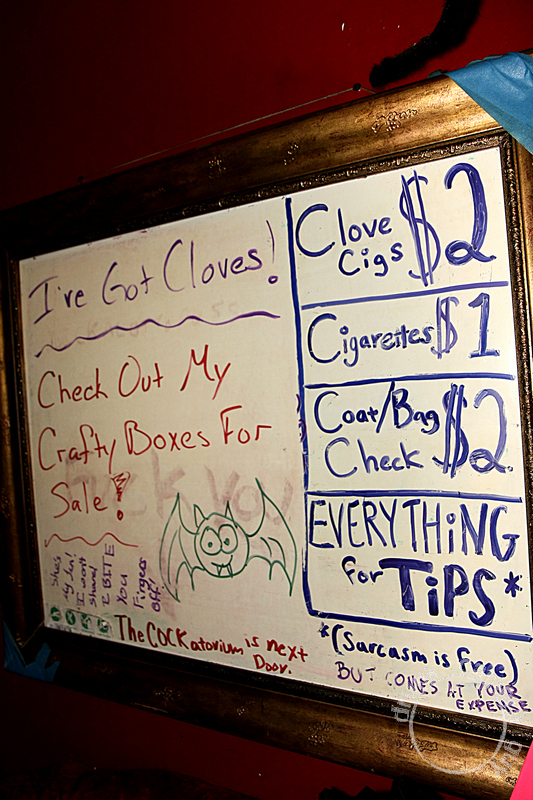 I've Got Cloves!
Check Out My
Crafty Boxes For
Sale!
She's
My Jen!
I won't
share!
I BITE
You
Fingers
OFF!
The COCKatorium is next
Door.
Clove $2
Cigs
Cigarettes $1
Coat/Bag $2
Check
EVERYTHiNG
for TiPS*
*(Sarcasm is free)
BUT COMES AT YOUR
EXPENSE
fuck you